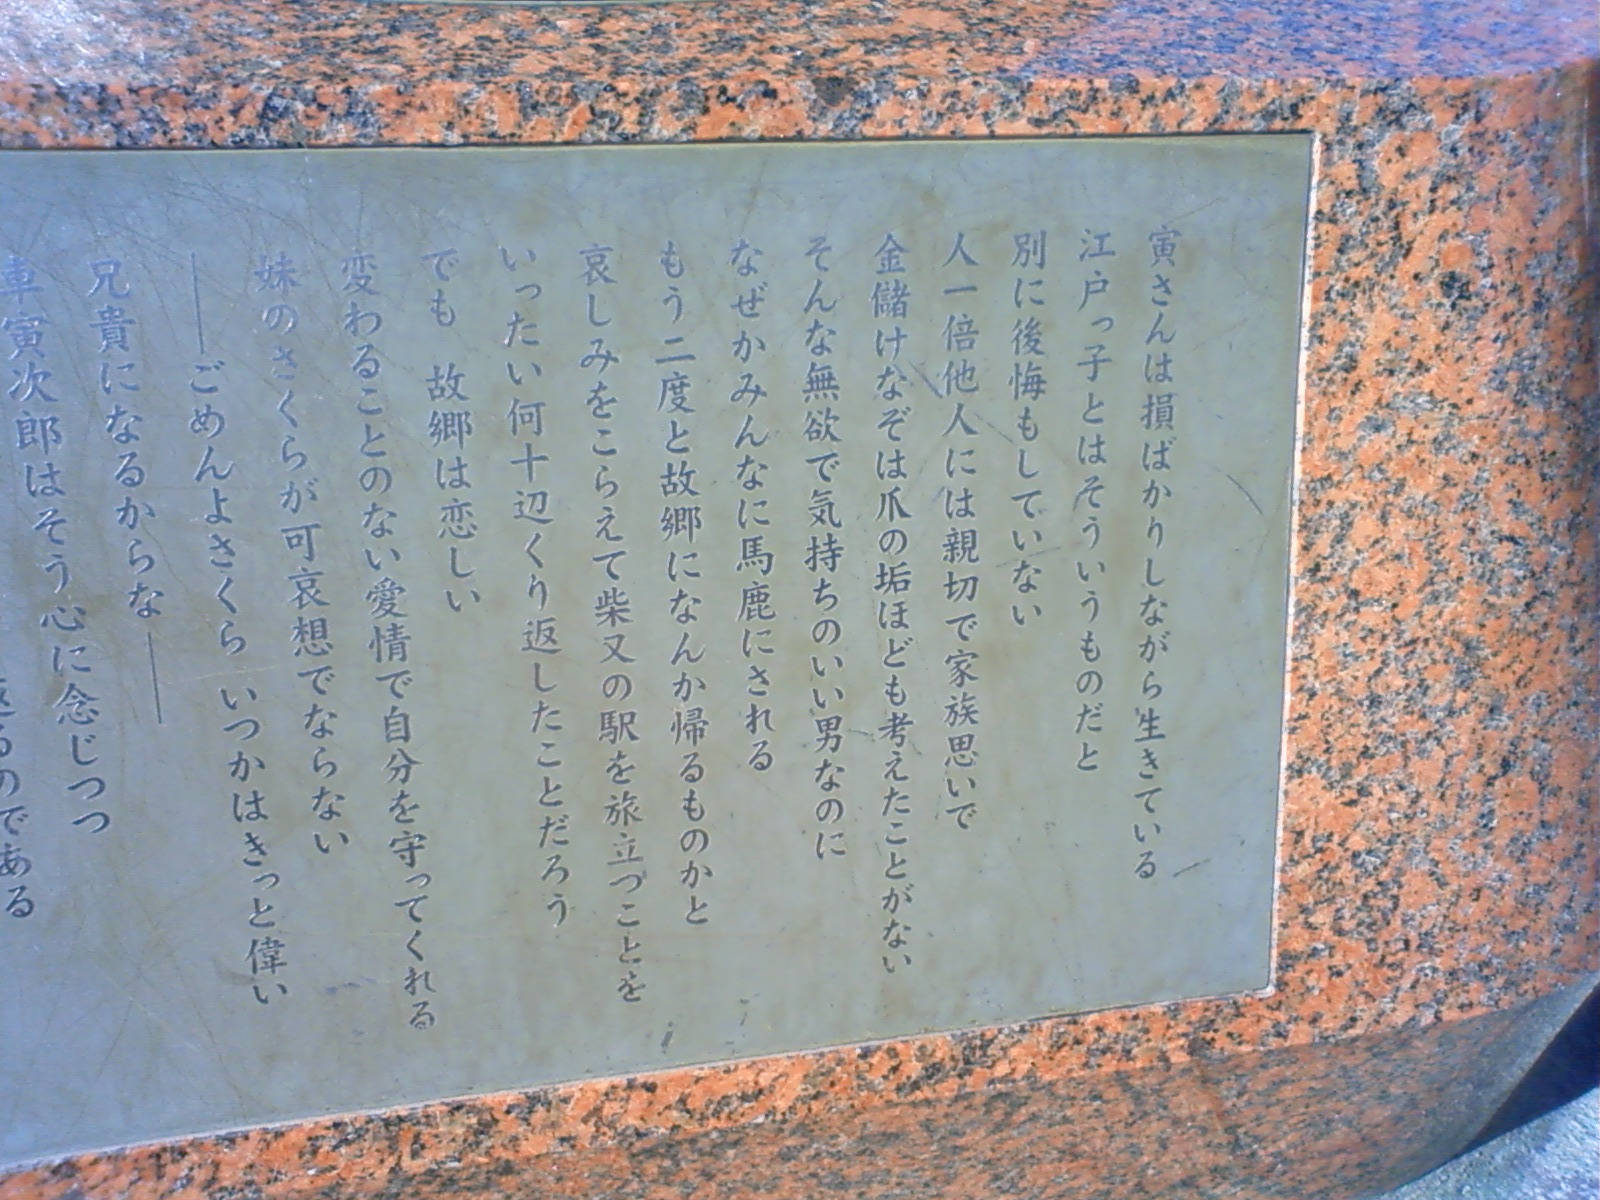 寅さんは損ばかりしながら生きている
江戸っ子とはそういうものだと
別に後悔もしていない
人一倍他人には親切で家族思いで
金儲けなぞは爪の垢ほども考えたことがない
そんな無欲で気持ちのいい男なのに
なぜかみんなに馬鹿にされる
もう二度と故郷になんか帰るものかと
哀しみをこらえて柴又の駅を旅立つことを
いったい何十辺くり返したことだろう
でも 故郷は恋しい
変わることのない愛情で自分を守ってくれる
妹のさくらが可哀想でならない
――ごめんよさくら いつかはきっと偉い
兄貴になるからな――
車寅次郎はそう心に念じつつ
るのである